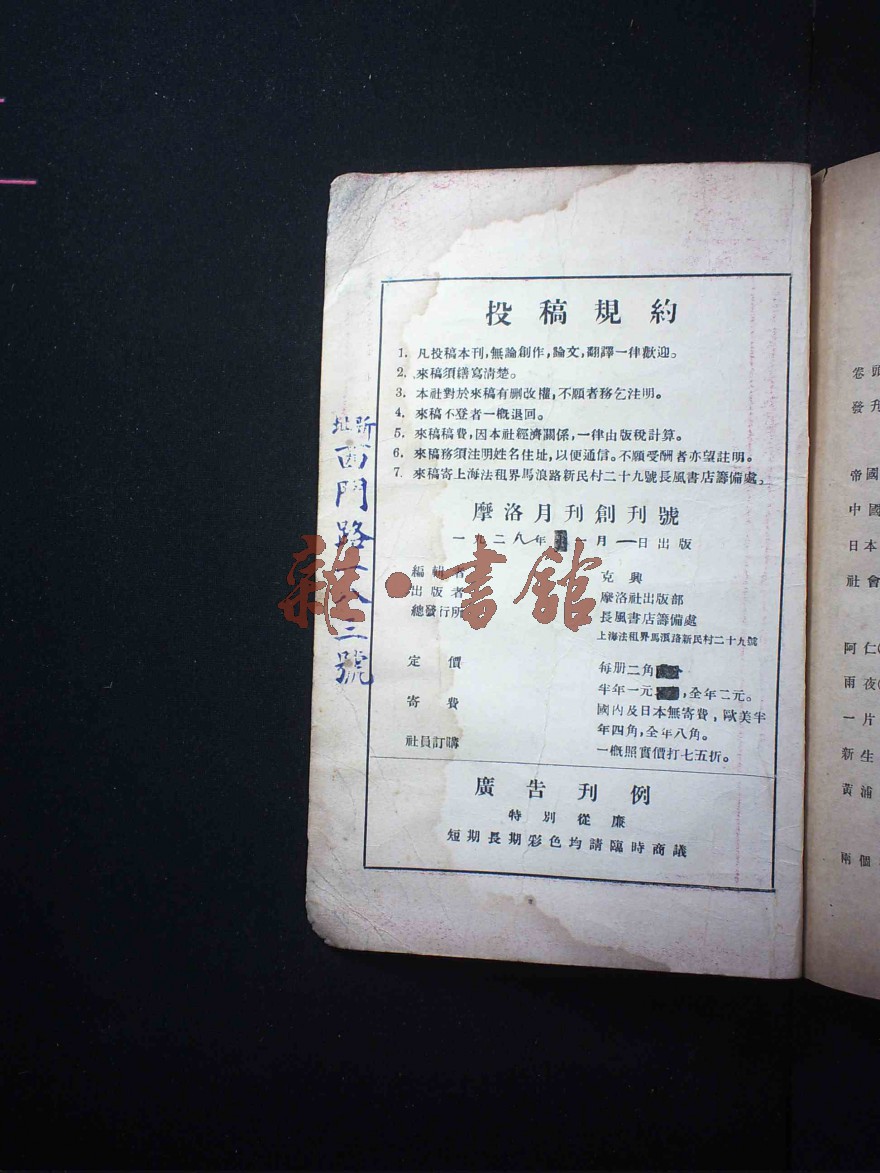 投稿規約
1. 凡投稿本刊，無論創作，論文，翻譯一律歡迎。
2. 來稿須繕寫清楚。
3. 本社對於來稿有刪改權，不願者務乞注明。
4. 來稿不登者一概退回。
5. 來稿稿費，因本社經濟關係，一律由版稅計算。
6. 來稿務須注明姓名住址，以便通信。不願受酬者亦望註明。
7. 來稿寄上海法租界馬浪路新民村二十九號長風書店籌備處。
摩洛月刊創刊號
一九二八年 月一日出版
編輯者 克興
出版者 摩洛社出版部
總發行所 長風書店籌備處
上海法租界馬浪路新民村二十九號
定價 每册二角
半年一元，全年二元。
寄費 國内及日本無寄費，歐美半
年四角，全年八角。
社員訂購 一概照實價打七五折。
廣告刊例
特別從廉
短期長期彩色均請臨時商議
新址
西門路 三號
雜·書館
卷頭
發刊
帝國
中國
日本
社會
阿仁
雨夜
一片
新生
黃浦
兩個